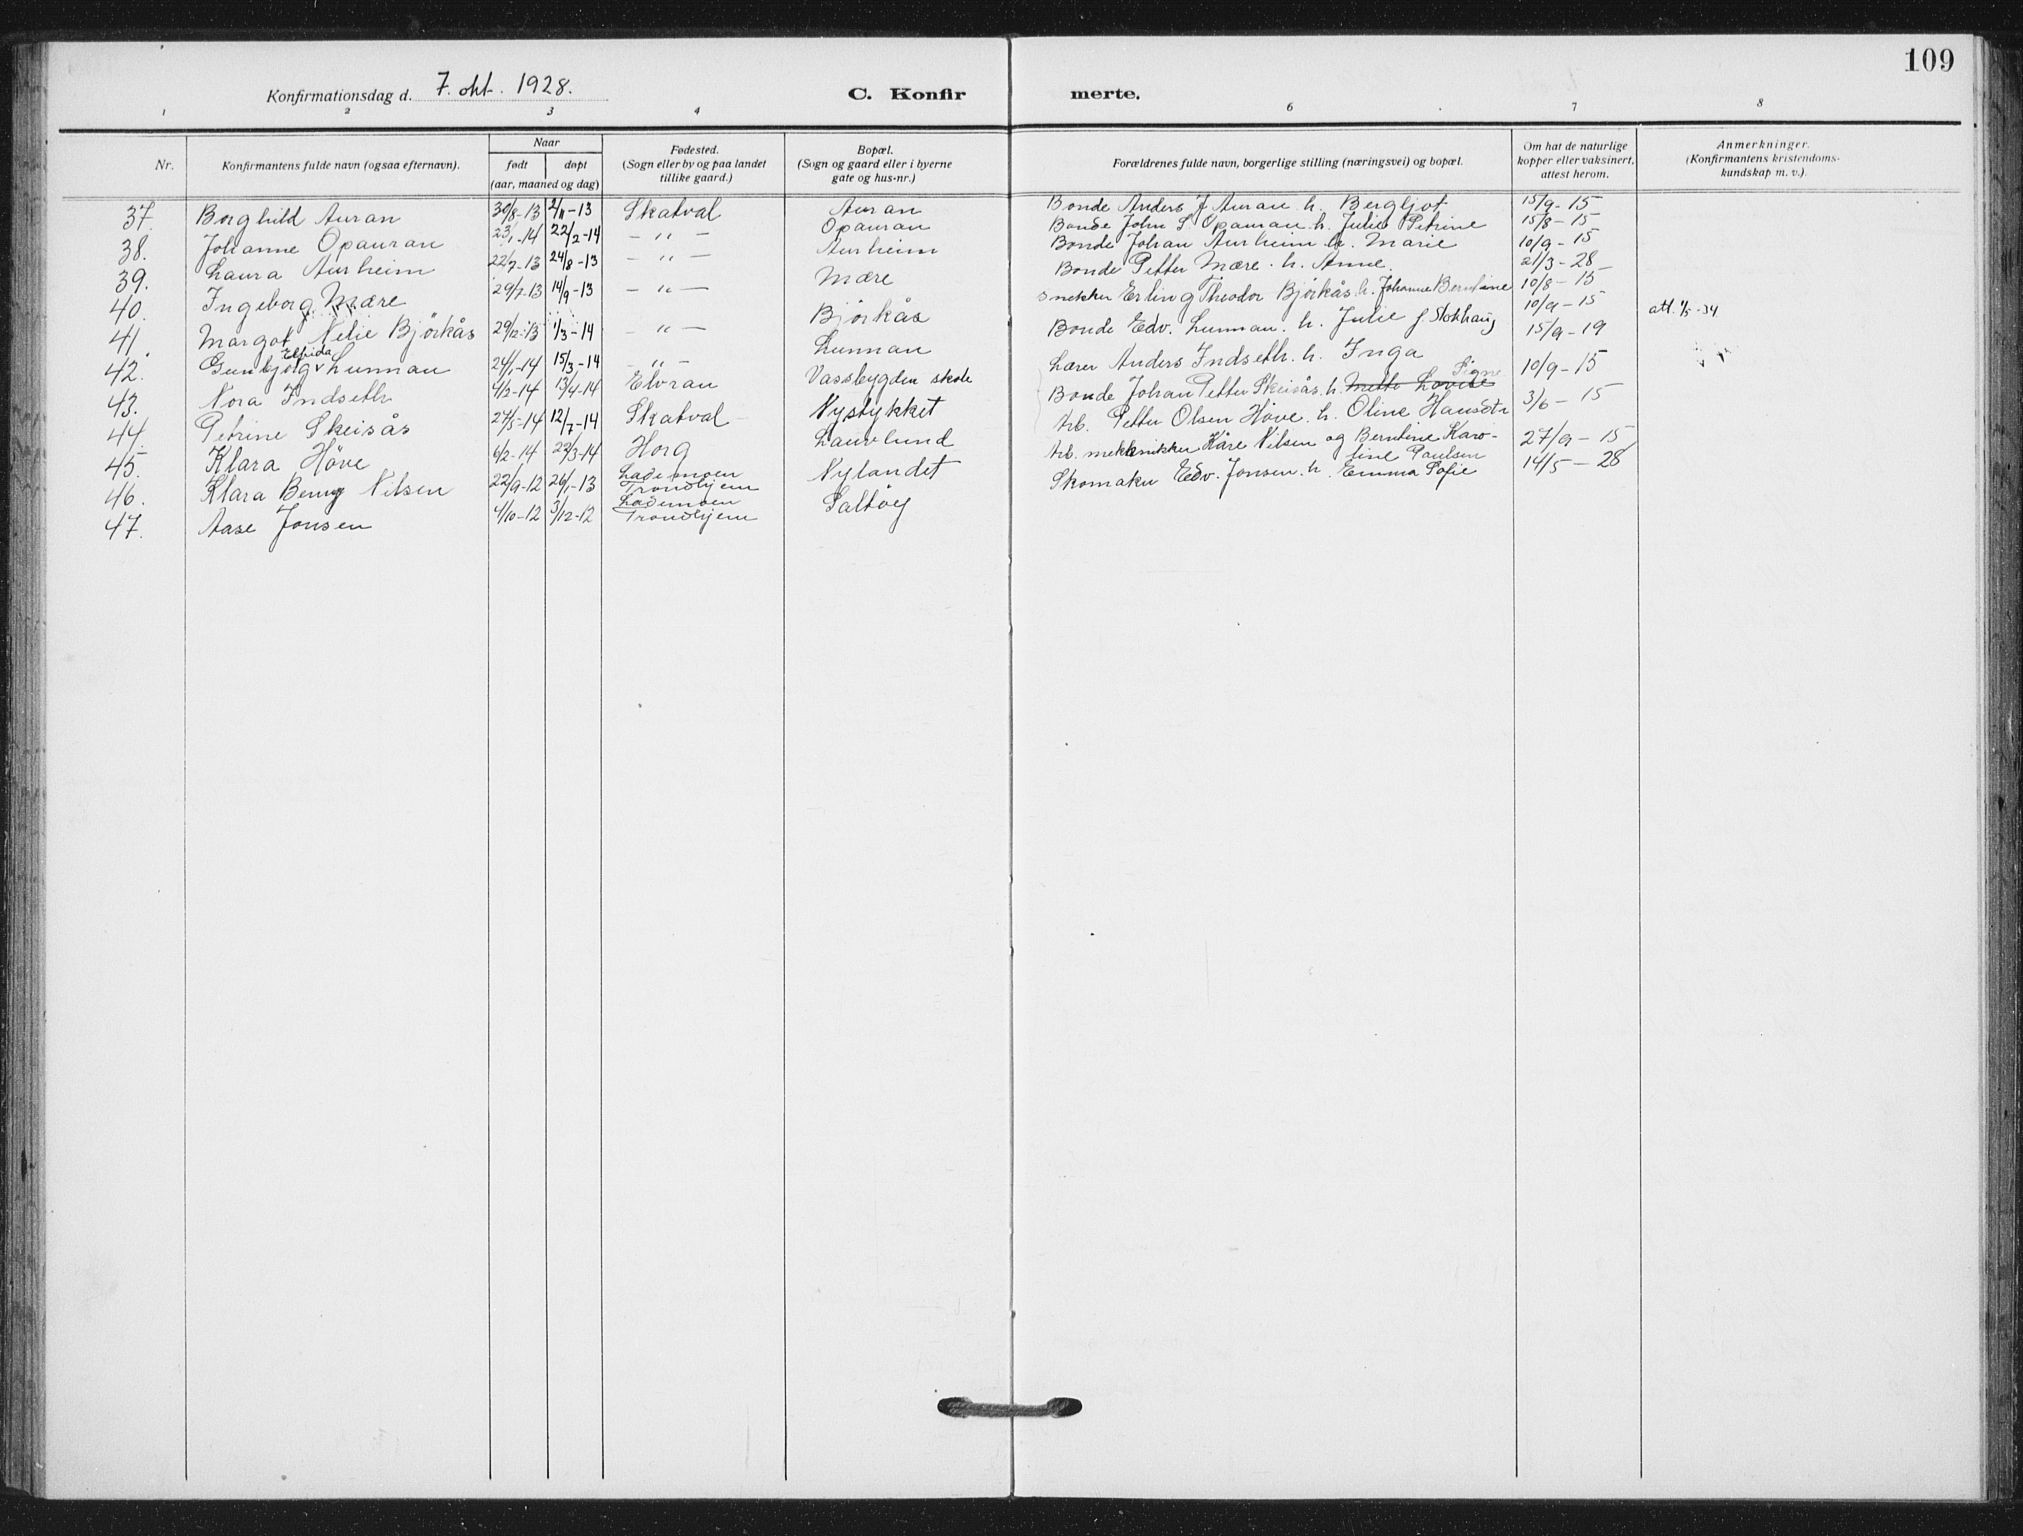 109
Konfirmationsdag d. 7. okt. 1928. C. Konfir merte.
1 2 3 4 6 7 8
Nr. Konfirmantens fulde navn (ogsaa efternavn). Naar født døpt (aar, maaned og dag) Fødested. (Sogn eller by og paa landet tillike gaard.) Bopæl. (Sogn og gaard eller i byerne gate og hus-nr.) Forældrenes fulde navn, borgerlige stilling (næringsvei) og bopæl. Om hat de naturlige kopper eller vaksinert, attest herom. Anmerkninger. (Konfirmantens kristendoms- kundskap m. v.).
37. Borghild Auran 30/8-13 2/11-13 Skatval Auran Bonde Anders J Auran h. Bergljot 15/9-15
38. Johanne Opauran 23/1-14 22/2-14 - " - Opauran Bonde John S Opauran h. Julie Petrine 15/8-15
39. Laura Aurheim 22/7-13 24/8-13 - " - Aurheim Bonde Johan Aurheim h. Marie 10/9-15
40. Ingeborg Mære 29/7-13 14/9-13 - " - Mære Bonde Petter Mære. h. Anne. 21/3-28
41. Margot Nelie Bjørkås 29/12-13 1/3-14 - " - Bjørkås Snekker Erling Theodor Bjørkås h. Johanne Berntine 10/8-15
42. Gunbjørg Elfrida Lunnan 24/1-14 15/3-14 - " - Lunnan Bonde Edv. Lunnan. h. Julie f Stokhaug 10/9-15 att. 1/5-34
43. Nora Indseth 4/2-14 13/4-14 Elvran Vassbygden skole Lærer Anders Indseth. h. Inga 15/9-19
44. Petrine Skeisås 27/5-14 12/7-14 Skatval Nystykket Bonde Johan Petter Skeisås. h. Mette Lovise Signe 10/9-15
45. Klara Höve 6/2-14 22/3-14 Horg Laurlund Arb. Petter Olsen Höve. h. Oline Hansdtr 3/6-15
46. Klara Benny Nilsen 22/9-12 26/1-13 Lademoen Trondhjem Nylandet Arb. mekkenikker Kåre Nilsen og Berntine Karoline Paulsen 27/9-15
47. Aase Jonsen 4/10-12 3/12-12 Lademoen Trondhjem Saltöy Skomaker Edv. Jonsen. h. Emma Sofie 14/5-28